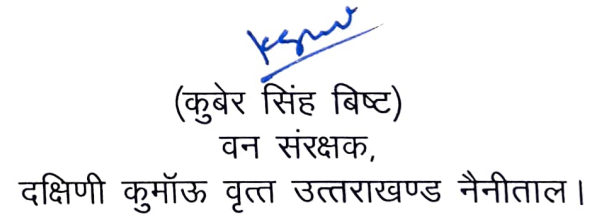 (कुबेर सिंह बिष्ट)
वन संरक्षक,
दक्षिणी कुमॉऊ वृत्त उत्तराखण्ड नैनीताल।